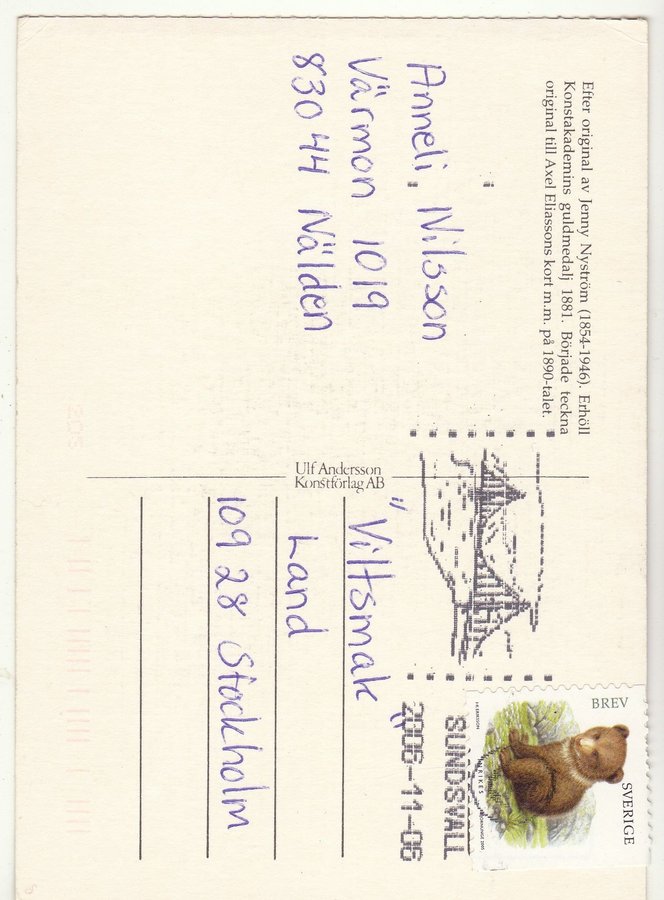 Efter original av Jenny Nyström (1854-1946). Erhöll
Konstakademins guldmedalj 1881. Började teckna
original till Axel Eliassons kort m.m. på 1890-talet.
Anneli Nilsson
Värmon 1019
830 44 Nälden
Ulf Andersson
Konstförlag AB
"Viltsmak"
Land
109 28 Stockholm
SUNDSVALL
2006-11-06
BREV
SVERIGE